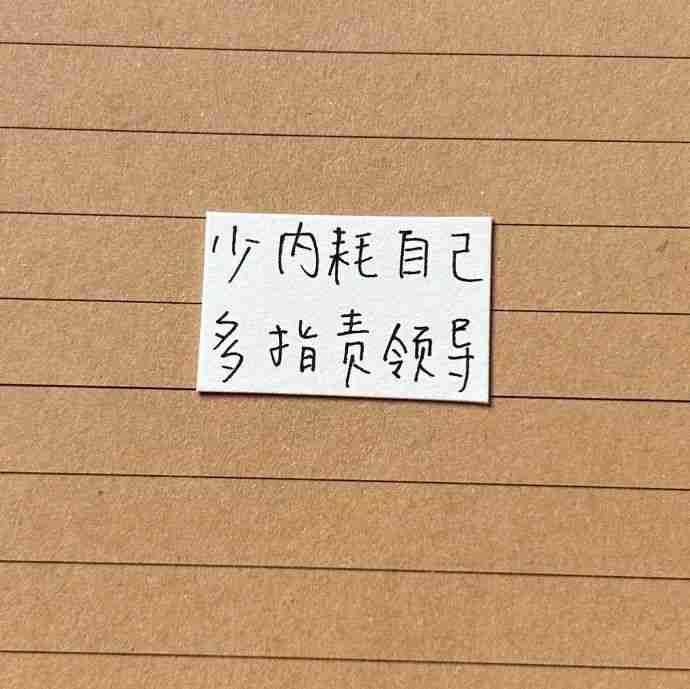 少内耗自己
多指责领导